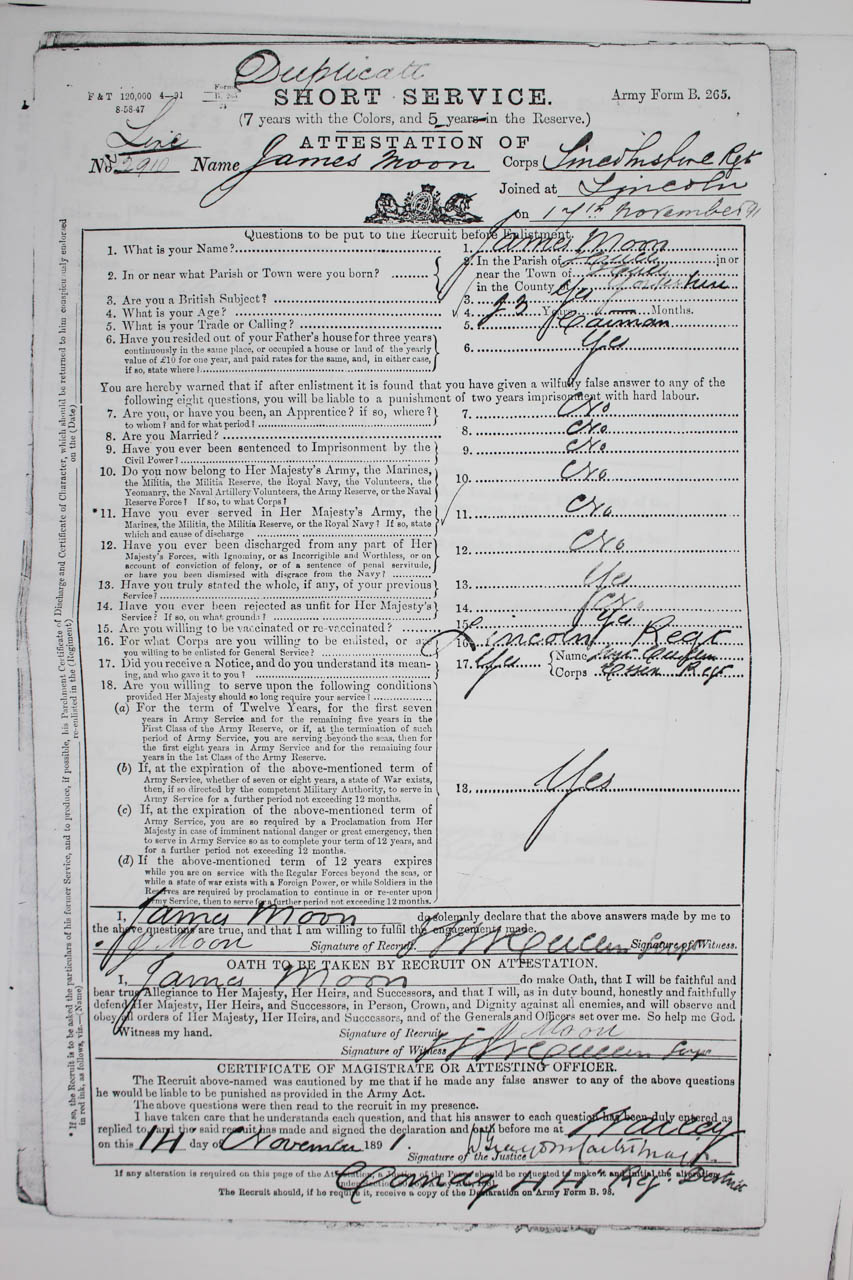 Duplicate
F & T 120,000 4—91
8-58-47
Form
B. 265
SHORT SERVICE.
Army Form B. 265.
(7 years with the Colors, and 5 years in the Reserve.)
Line
ATTESTATION OF
No. 2910 Name James Moon Corps Lincolnshire Regt
Joined at Lincoln
on 17th November 91
Questions to be put to the Recruit before Enlistment.
1. What is your Name? 1. James Moon
2. In or near what Parish or Town were you born? 2. In the Parish of in or
near the Town of
in the County of Yorkshire
3. Are you a British Subject? 3. Yes
4. What is your Age? 4. 23 Years Months.
5. What is your Trade or Calling? 5. Carman
6. Have you resided out of your Father's house for three years
continuously in the same place, or occupied a house or land of the yearly
value of £10 for one year, and paid rates for the same, and, in either case,
if so, state where? 6. Yes
You are hereby warned that if after enlistment it is found that you have given a wilfully false answer to any of the
following eight questions, you will be liable to a punishment of two years imprisonment with hard labour.
7. Are you, or have you been, an Apprentice? if so, where?
to whom? and for what period? 7. No
8. Are you Married? 8. No
9. Have you ever been sentenced to Imprisonment by the
Civil Power? 9. No
10. Do you now belong to Her Majesty's Army, the Marines,
the Militia, the Militia Reserve, the Royal Navy, the Volunteers, the
Yeomanry, the Naval Artillery Volunteers, the Army Reserve, or the Naval
Reserve Force? If so, to what Corps? 10. No
*11. Have you ever served in Her Majesty's Army, the
Marines, the Militia, the Militia Reserve, or the Royal Navy? If so, state
which and cause of discharge 11. No
12. Have you ever been discharged from any part of Her
Majesty's Forces, with Ignominy, or as Incorrigible and Worthless, or on
account of conviction of felony, or of a sentence of penal servitude,
or have you been dismissed with disgrace from the Navy? 12. No
13. Have you truly stated the whole, if any, of your previous
Service? 13. Yes
14. Have you ever been rejected as unfit for Her Majesty's
Service? If so, on what grounds? 14. No
15. Are you willing to be vaccinated or re-vaccinated? 15. Yes
16. For what Corps are you willing to be enlisted, or are
you willing to be enlisted for General Service? 16. Lincoln Regt
17. Did you receive a Notice, and do you understand its mean-
ing, and who gave it to you? 17. Yes Name Sergt
Corps Essex Regt
18. Are you willing to serve upon the following conditions
provided Her Majesty should so long require your service?
(a) For the term of Twelve Years, for the first seven
years in Army Service and for the remaining five years in the
First Class of the Army Reserve, or if, at the termination of such
period of Army Service, you are serving beyond the seas, then for
the first eight years in Army Service and for the remaining four
years in the 1st Class of the Army Reserve.
(b) If, at the expiration of the above-mentioned term of
Army Service, whether of seven or eight years, a state of War exists,
then, if so directed by the competent Military Authority, to serve in
Army Service for a further period not exceeding 12 months.
18. Yes
(c) If, at the expiration of the above-mentioned term of
Army Service, you are so required by a Proclamation from Her
Majesty in case of imminent national danger or great emergency, then
to serve in Army Service so as to complete your term of 12 years, and
for a further period not exceeding 12 months.
(d) If the above-mentioned term of 12 years expires
while you are on service with the Regular Forces beyond the seas, or
while a state of war exists with a Foreign Power, or while Soldiers in the
Reserves are required by proclamation to continue in or re-enter upon
Army Service, then to serve for a further period not exceeding 12 months.
I, James Moon do solemnly declare that the above answers made by me to
the above questions are true, and that I am willing to fulfil the engagements made.
J Moon Signature of Recruit. Sergt Signature of Witness.
OATH TO BE TAKEN BY RECRUIT ON ATTESTATION.
I, James Moon do make Oath, that I will be faithful and
bear true Allegiance to Her Majesty, Her Heirs, and Successors, and that I will, as in duty bound, honestly and faithfully
defend Her Majesty, Her Heirs, and Successors, in Person, Crown, and Dignity against all enemies, and will observe and
obey all orders of Her Majesty, Her Heirs, and Successors, and of the Generals and Officers set over me. So help me God.
Witness my hand. Signature of Recruit J Moon
Signature of Witness Sergt
CERTIFICATE OF MAGISTRATE OR ATTESTING OFFICER.
The Recruit above-named was cautioned by me that if he made any false answer to any of the above questions
he would be liable to be punished as provided in the Army Act.
The above questions were then read to the recruit in my presence.
I have taken care that he understands each question, and that his answer to each question has been duly entered as
replied to, and the said recruit has made and signed the declaration and oath before me at Warley
on this 14 day of November 1891.
Signature of the Justice
If any alteration is required on this page of the Attestation, a Justice of the Peace should be requested to make it and initial the alteration
under Section
Comdg 44 Reg. District
The Recruit should, if he require it, receive a copy of the Declaration on Army Form B. 98.
* If so, the Recruit is to be asked the particulars of his former Service, and to produce, if possible, his Parchment Certificate of Discharge and Certificate of Character, which should be returned to him conspicuously endorsed
in red ink, as follows, viz.—(Name) re-enlisted in the (Regiment) on the (Date)